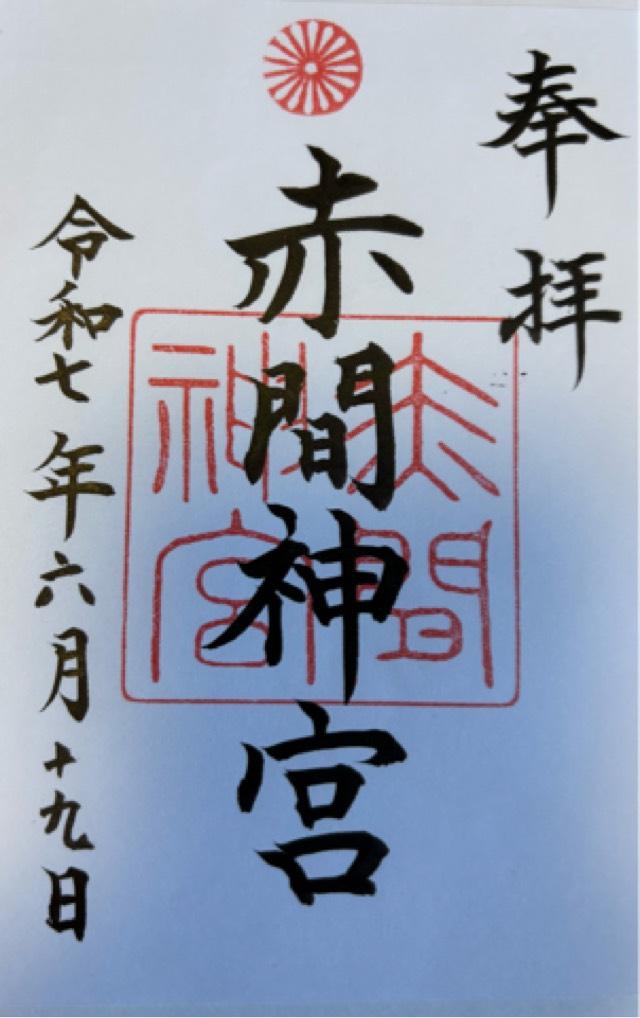 奉拝
赤間神宮
赤間神宮
令和七年六月十九日